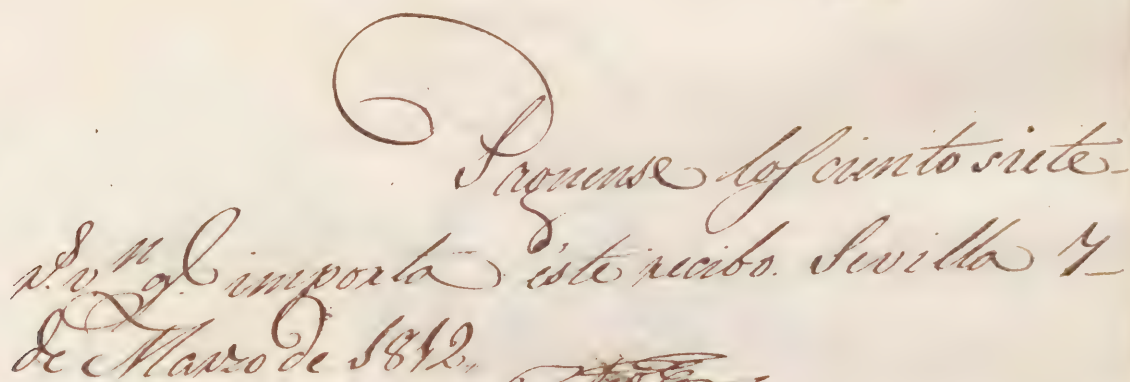 Paguense los ciento siete
r.s v.n q.e importa éste recibo. Sevilla 7
de Marzo de 1812.